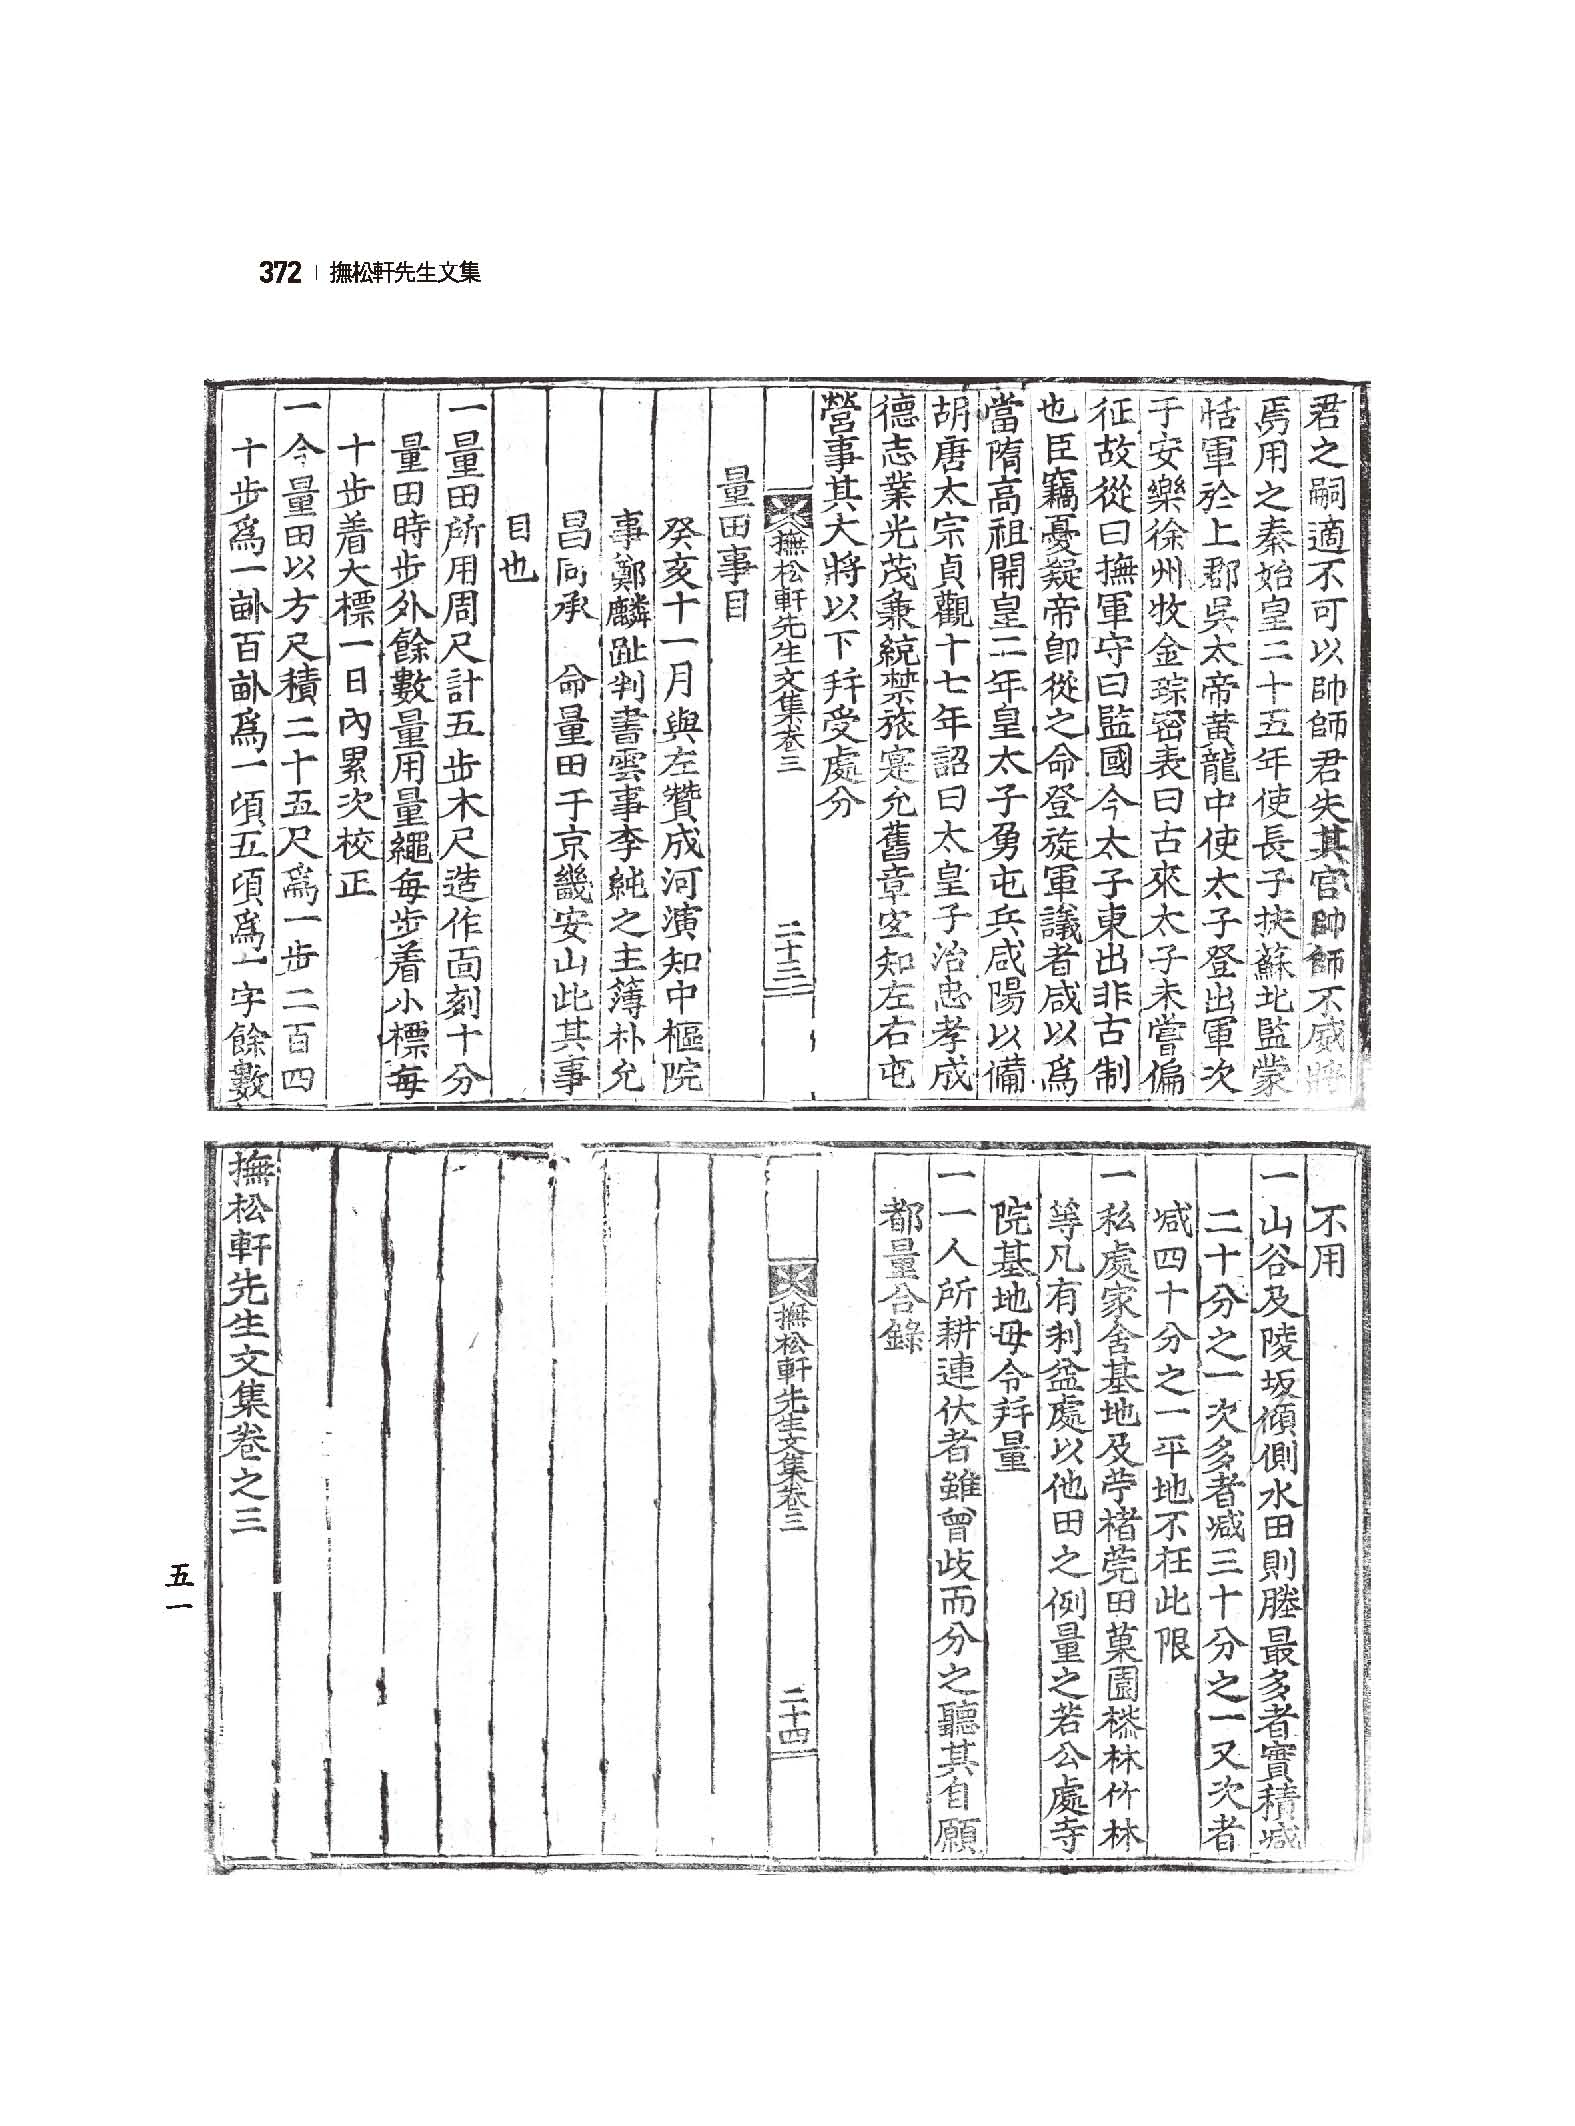 372 | 撫松軒先生文集
君之嗣適不可以帥師君失其官帥師不威將
焉用之秦始皇二十五年使長子扶蘇北監蒙
恬軍於上郡吳太帝黃龍中使太子登出軍次
于安樂徐州牧金踪密表曰古來太子未嘗偏
征故從曰撫軍守曰監國今太子東出非古制
也臣竊憂疑帝卽從之命登旋軍議者咸以爲
當隋高祖開皇二年皇太子勇屯兵咸陽以備
胡唐太宗貞觀十七年詔曰太皇子治忠孝成
德志業光茂兼統禁旅寔允舊章宜知左右屯
營事其大將以下幷受處分
撫松軒先生文集卷三
二十三
量田事目
癸亥十一月與左贊成河演知中樞院
事鄭麟趾判書雲事李純之主簿朴允
昌同承 命量田于京畿安山此其事
目也
一量田所用周尺計五步木尺造作面刻十分
量田時步外餘數量用量繩每步着小標每
十步着大標一日內累次校正
一今量田以方尺積二十五尺爲一步二百四
十步爲一畝百畝爲一頃五頃爲一字餘數
不用
一山谷及陵坂傾側水田則塍最多者實積减
二十分之一次多者减三十分之一又次者
减四十分之一平地不在此限
一私處家舍基地及苧楮莞田菓園桼林竹林
等凡有利益處以他田之例量之若公處寺
院基地毋令幷量
一一人所耕連伏者雖曾歧而分之聽其自願
都量合錄
撫松軒先生文集卷三
二十四
撫松軒先生文集卷之三
五一